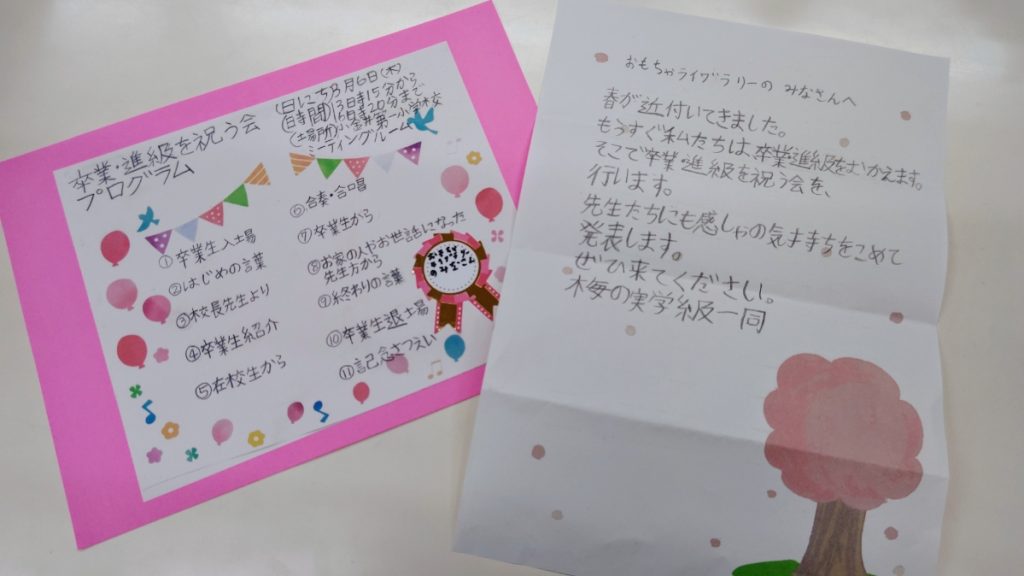 卒業・進級を祝う会
プログラム
(日にち)3月6日(木)
(時間)13時15分から
16時20分まで
(場所)小金井第一小学校
ミーティングルーム
①卒業生入場
②はじめの言葉
③校長先生より
④卒業生紹介
⑤在校生から
⑥合奏・合唱
⑦卒業生から
⑧お家の人やお世話になった
先生方から
⑨終わりの言葉
⑩卒業生退場
⑪記念さつえい
おもちゃ
のみなさん
おもちゃライブラリーの みなさんへ
春が近付いてきました。
もうすぐ私たちは、卒業進級をむかえます。
そこで卒業・進級を祝う会を、
行います。
先生たちにも感しゃの気持ちをこめて
発表します。
ぜひ来てください。
梅の実学級一同